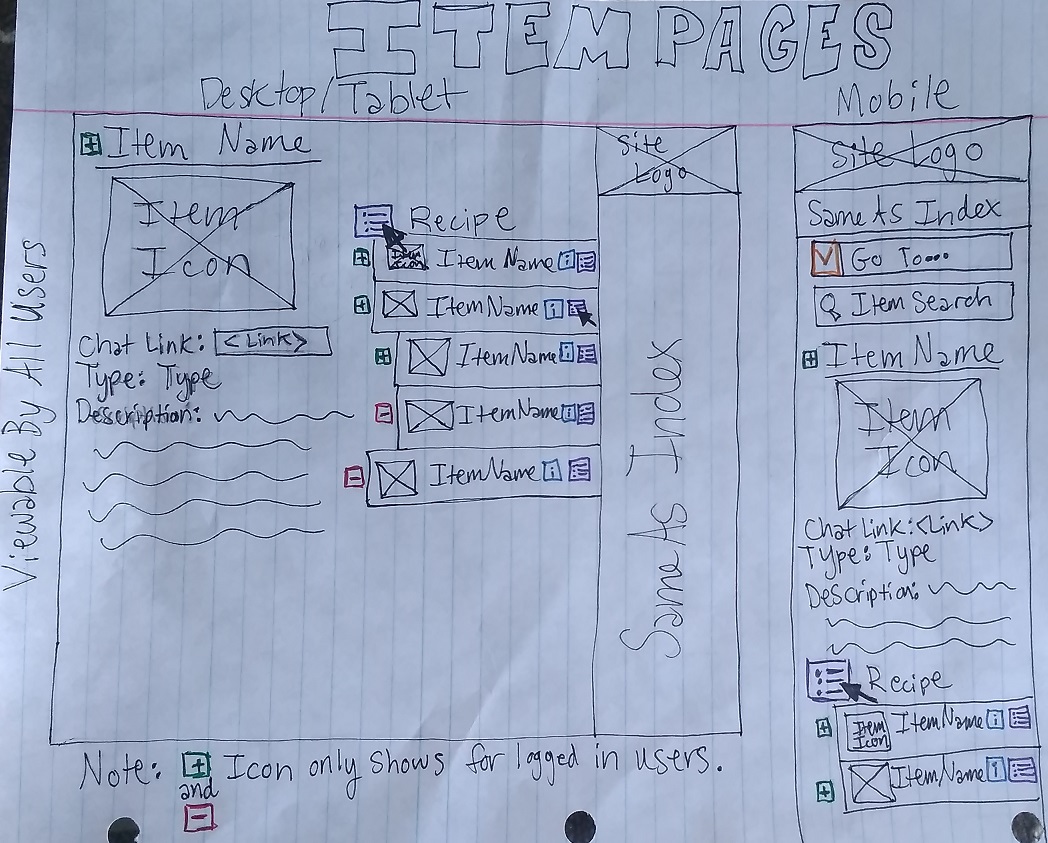 ITEM PAGES
Desktop/Tablet
Mobile
Viewable By All Users
Item Name
Item
Icon
Chat Link: <Link>
Type: Type
Description:
Recipe
Item
Icon
Item Name i
Item Name i
Item Name i
Item Name i
Item Name i
Site
Logo
Same As Index
Site Logo
Same As Index
Go To...
Item Search
Item Name
Item
Icon
Chat Link: <Link>
Type: Type
Description:
Recipe
Item
Icon
Item Name i
Item Name i
Note: + Icon only shows for logged in users.
and
-